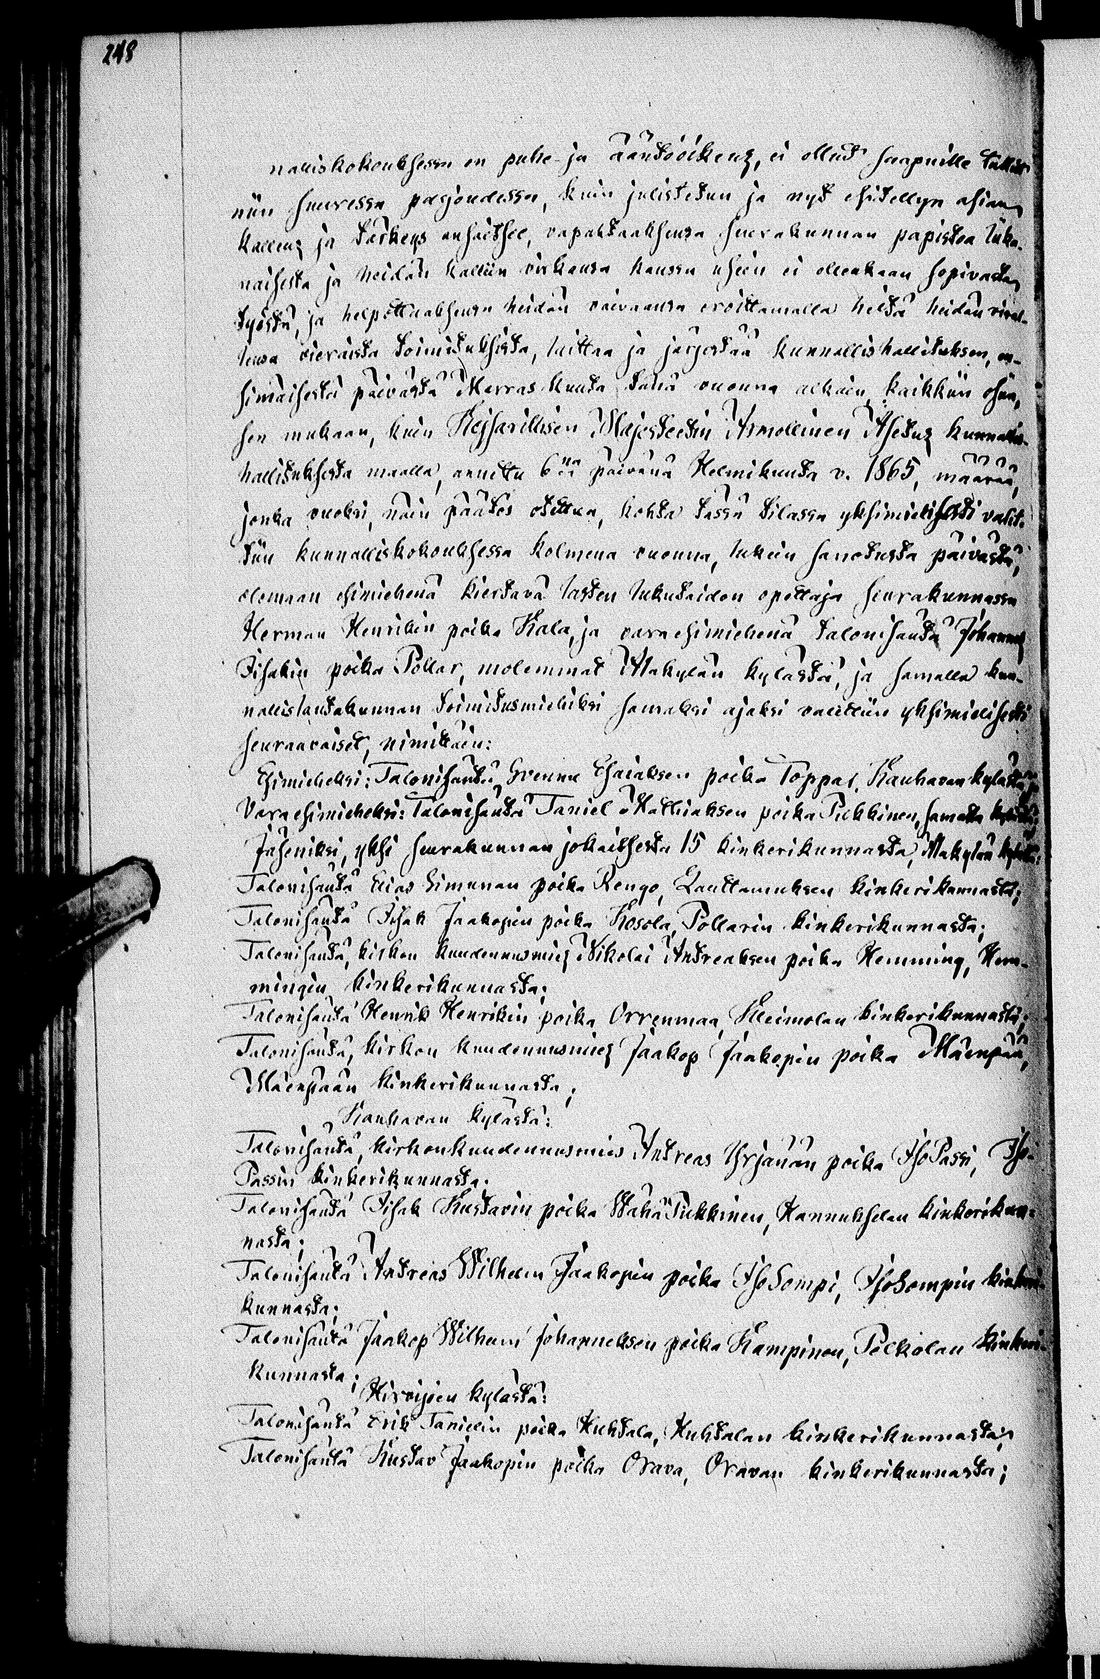 248
nalliskokouksessa on puhe- ja äändöoikeus, ei ollut saapuille tullut
niin suuressa paljoudessa, kuin julistetun ja nyt esitellyn asian
kalleus ja tärkeys ansaitsee, vapahtaaksensa seurakunnan papistoa liika-
naisesta ja heidän kalliin virkansa kanssa usein ei ollenkaan sopivasta
työstä, ja helpottaaksensa heidän vaivaansa eroittamalla heiltä heidän viral-
lensa vieraista toimituksista, laittaa ja järjestää kunnallishallituksen, en-
simäisestä päivästä Marras kuuta tänä vuonna alkain, kaikkiin osiin,
sen mukaan, kuin Keisarillisen Majesteetin Armollinen Asetus kunnallis-
hallituksesta maalla, annettu 6na päivänä Helmikuuta v. 1865, määrää,
jonka vuoksi, näin päätös otettua, kohta tässä tilassa yksimielisesti valit-
tiin kunnalliskokouksessa kolmena vuonna, lukein sanotusta päivästä,
olemaan esimiehenä kiertävä lasten lukutaidon opettaja seurakunnassa
Herman Henrikin poika Kala, ja vara esimiehenä talonisäntä Johannes
Iisakin poika Pollar, molemmat Alakylän kylästä, ja samalla kun-
nallislautakunnan toimitusmiehiksi samaksi ajaksi valittiin yksimielisesti
seuraavaiset, nimittäin:
Esimieheksi: Talonisäntä, Esaiaksen poika Toppar, Kauhavan kylästä,
Vara esimieheksi: Talonisäntä Taniel Matthiaksen poika Pukkinen, samasta kylästä,
Jäseniksi, yksi seurakunnan jokaitsesta 15 kinkerikunnasta, Alakylän kylästä:
Talonisäntä Elias Simunan poika Rengo, Lauttamuksen kinkerikunnasta;
Talonisäntä Iisak Jaakopin poika Kosola, Pollarin kinkerikunnasta;
Talonisäntä, kirkon kuudennusmies Nikolai Andreaksen poika Hemming, Hem-
mingin kinkerikunnasta;
Talonisäntä Henrik Henrikin poika Orrenmaa, Kleimolan kinkerikunnasta;
Talonisäntä, kirkon kuudennusmies Jaakop Jaakopin poika Mäenpää,
Mäenpään kinkerikunnasta;
Kauhavan kylästä:
Talonisäntä, kirkonkuudennusmies Andreas Yrjänän poika Iso Passi, Iso-
Passin kinkerikunnasta;
Talonisäntä Iisak Kustavin poika Wähä Pukkinen, Hannukselan kinkerikun-
nasta;
Talonisäntä Andreas Wilhelm Jaakopin poika Iso Sompi, Iso Sompin kinkeri-
kunnasta;
Talonisäntä Jaakop Wilhelm Johanneksen poika Kampinen, Pelkolan kinkeri-
kunnasta;
Hirvijoen kylästä:
Talonisäntä Erik Tanielin poika Huhtala, Huhtalan kinkerikunnasta;
Talonisäntä Kustav Jaakopin poika Orava, Oravan kinkerikunnasta;